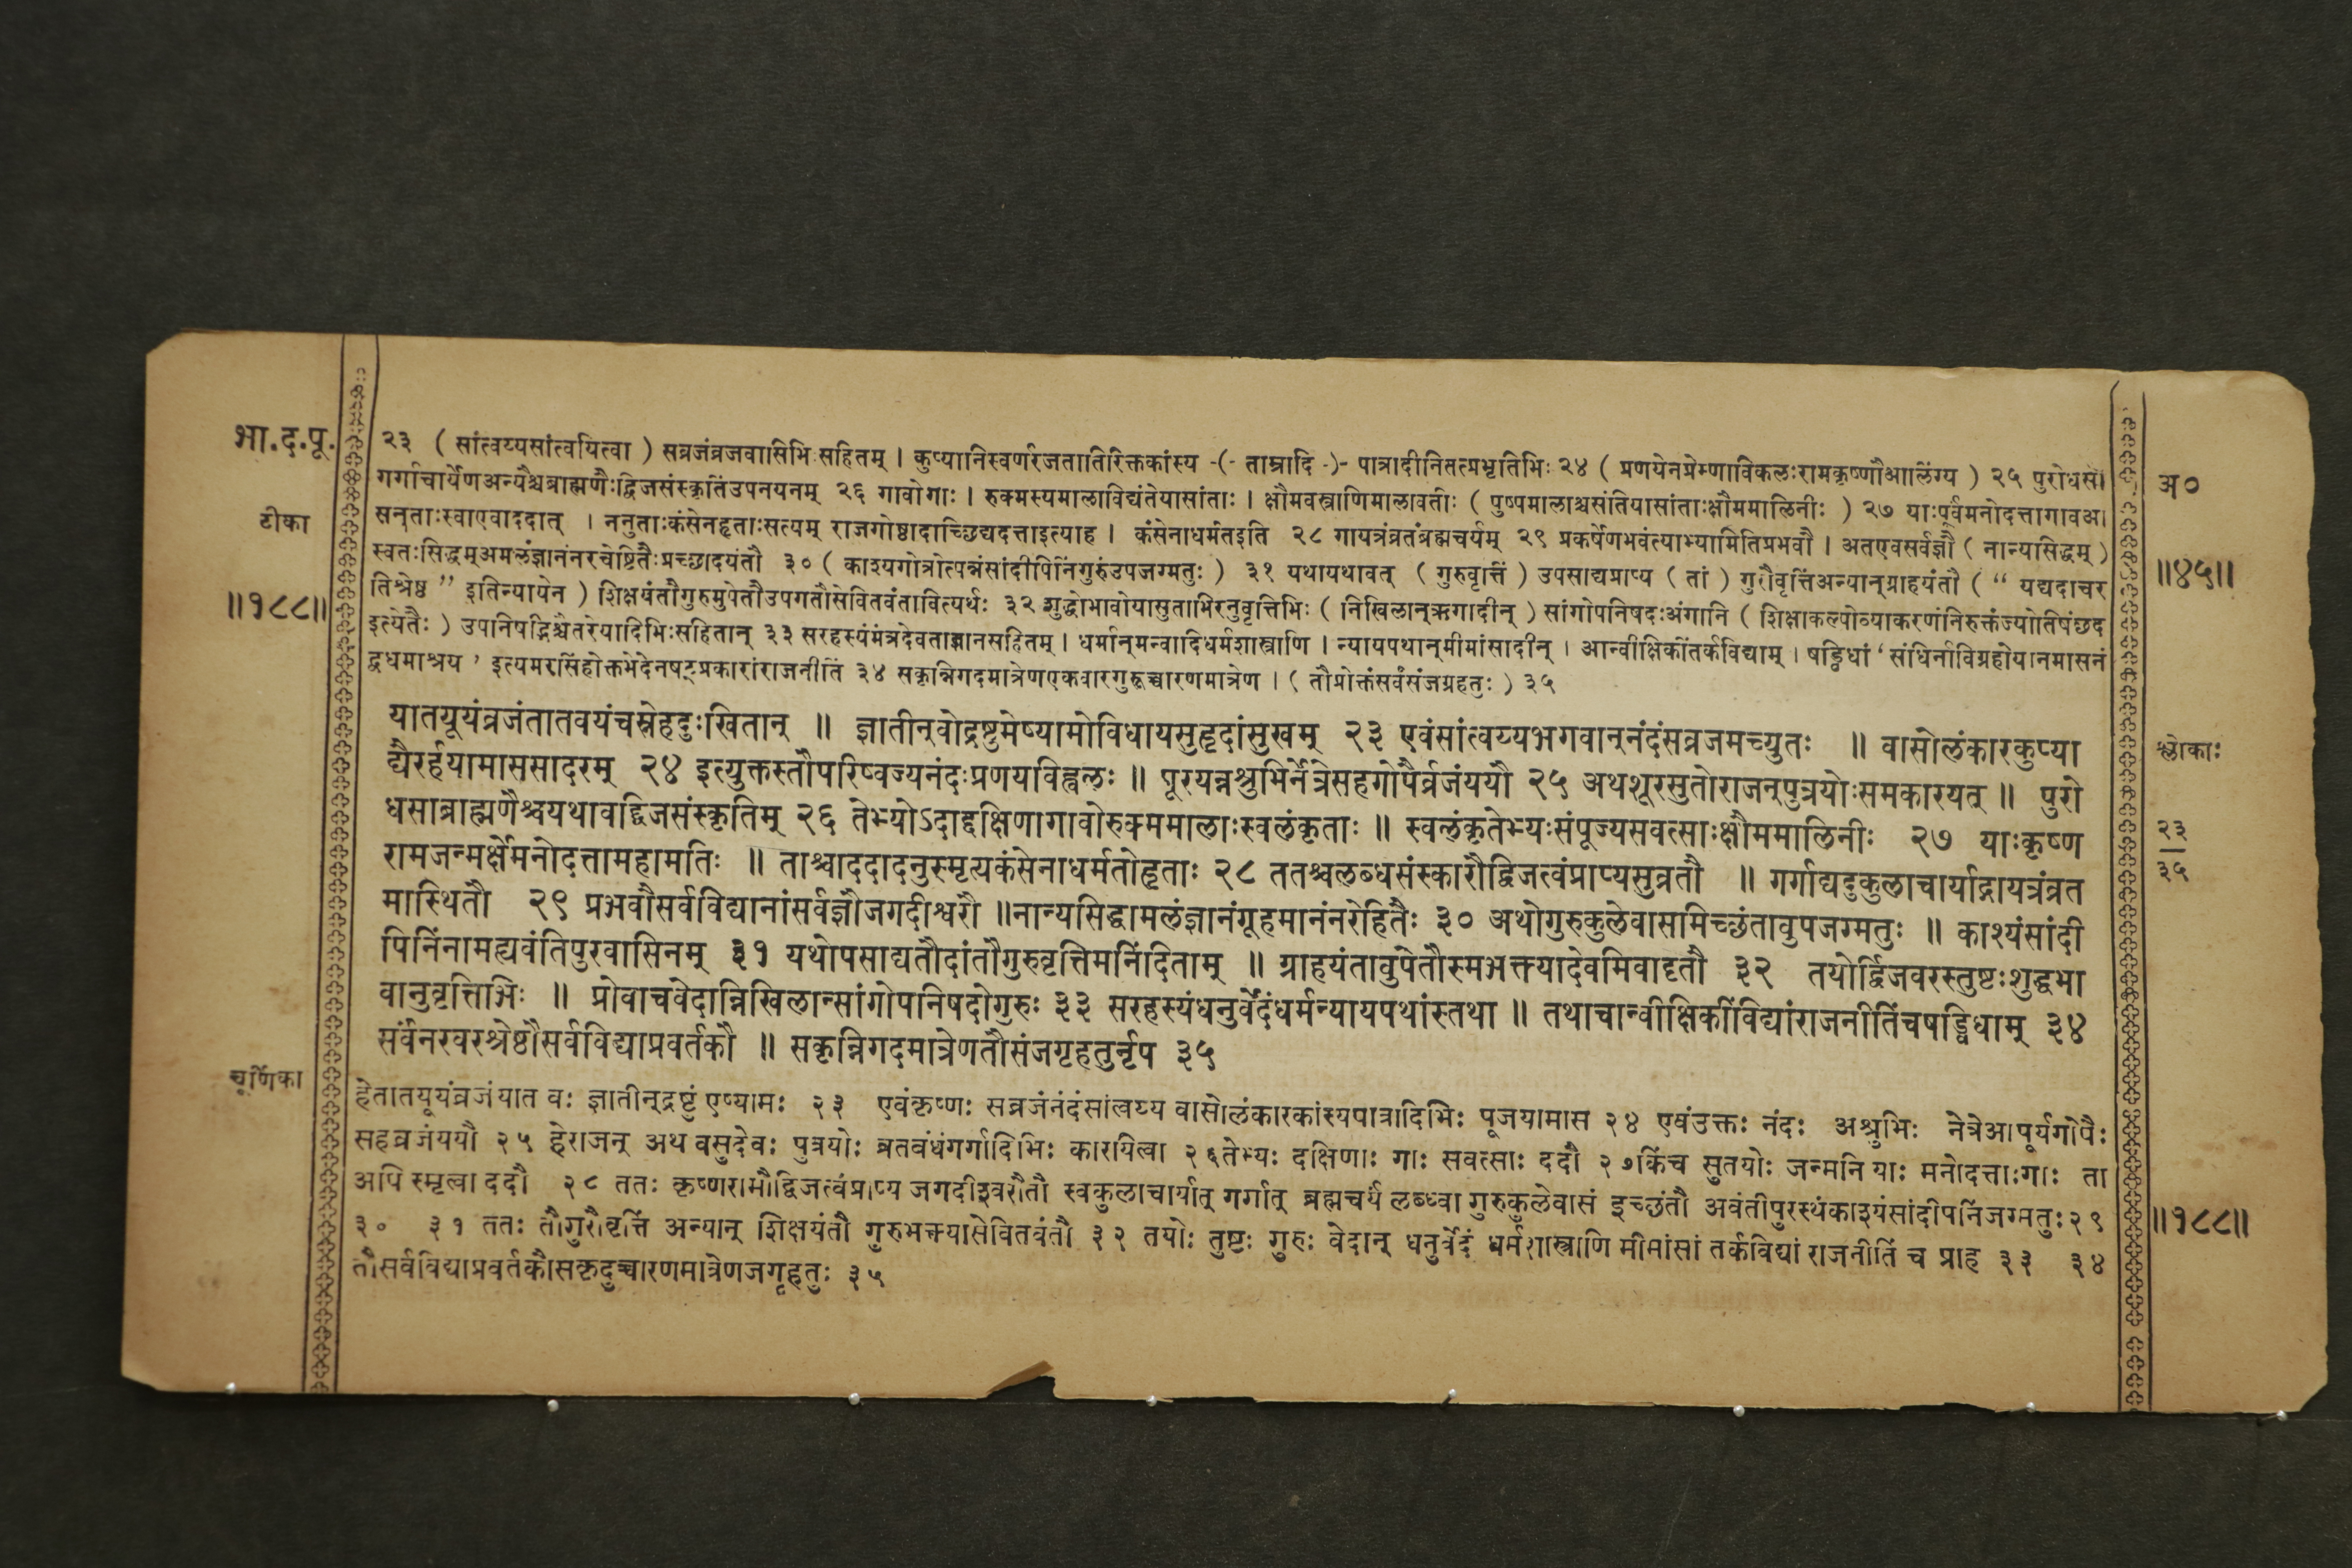 भा.द.पू.
टीका
॥१८८॥
२३ ( सांत्वय्यसांत्वयित्वा ) सव्रजंव्रजवासिभिःसहितम् । कुप्यानिस्वर्णरजतातिरिक्तकांस्य -(- ताम्रादि -)- पात्रादीनितत्प्रभृतिभिः २४ ( प्रणयेनप्रेम्णाविकलःरामकृष्णौआलिंग्य ) २५ पुरोधसा
गर्गाचार्येणअन्यैश्चब्राह्मणैःद्विजसंस्कृतिंउपनयनम् २६ गावोगाः । रुक्मस्यमालाविद्यंतेयासांताः । क्षौमवस्त्राणिमालावतीः ( पुष्पमालाश्चसंतियासांताःक्षौममालिनीः ) २७ याःपूर्वंमनोदत्तागावआ
सन्ताःस्वाएवाददात् । ननुताःकंसेनहृताःसत्यम् राजगोष्ठादाच्छिद्यदत्ताइत्याह । कंसेनाधर्मतइति २८ गायत्रंव्रतंब्रह्मचर्यम् २९ प्रकर्षेणभवंत्याभ्यामितिप्रभवौ । अतएवसर्वज्ञौ ( नान्यसिद्धम् )
स्वतःसिद्धम्अमलंज्ञानंनरचेष्टितैःप्रच्छादयंतौ ३० ( काश्यगोत्रोत्पन्नंसांदीपिनिंगुरुंउपजग्मतुः ) ३१ यथायथावत् ( गुरुवृत्तिं ) उपसाद्यप्राप्य ( तां ) गुरौवृत्तिंअन्यान्ग्राहयंतौ ( “ यद्यदाचर
तिश्रेष्ठ ” इतिन्यायेन ) शिक्षयंतौगुरुमुपेतौउपगतौसेवितवंतावित्यर्थः ३२ शुद्धोभावोयासुताभिरनुवृत्तिभिः ( निखिलान्ऋगादीन् ) सांगोपनिषदःअंगानि ( शिक्षाकल्पोव्याकरणंनिरुक्तंज्योतिषंछद
इत्येतैः ) उपनिषद्भिश्चैतरेयादिभिःसहितान् ३३ सरहस्यंमंत्रदेवताज्ञानसहितम् । धर्मान्मन्वादिधर्मशास्त्राणि । न्यायपथान्मीमांसादीन् । आन्वीक्षिकींतर्कविद्याम् । षड्विधां ‘ संधिर्नाविग्रहोयानमासनं
द्वैधमाश्रय ’ इत्यमरसिंहोक्तभेदेनषट्प्रकारांराजनीतिं ३४ सकृन्निगदमात्रेणएकवारगुरूच्चारणमात्रेण । ( तौप्रोक्तंसर्वंसंजग्रहतुः ) ३५
यातयूयंव्रजंतातवयंचस्नेहदुःखितान् ॥ ज्ञातीन्वोद्रष्टुमेष्यामोविधायसुहृदांसुखम् २३ एवंसांत्वय्यभगवान्नंदंसव्रजमच्युतः ॥ वासोलंकारकुप्या
द्यैरर्हयामाससादरम् २४ इत्युक्तस्तौपरिष्वज्यनंदःप्रणयविह्वलः ॥ पूरयन्नश्रुभिर्नेत्रेसहगोपैर्व्रजंययौ २५ अथशूरसुतोराजन्पुत्रयोःसमकारयत् ॥ पुरो
धसाब्राह्मणैश्चयथावद्द्विजसंस्कृतिम् २६ तेभ्योऽदाद्दक्षिणागावोरुक्ममालाःस्वलंकृताः ॥ स्वलंकृतेभ्यःसंपूज्यसवत्साःक्षौममालिनीः २७ याःकृष्ण
रामजन्मर्क्षेमनोदत्तामहामतिः ॥ ताश्चाददादनुस्मृत्यकंसेनाधर्मतोहृताः २८ ततश्चलब्धसंस्कारौद्विजत्वंप्राप्यसुव्रतौ ॥ गर्गाद्यदुकुलाचार्याद्गायत्रंव्रत
मास्थितौ २९ प्रभवौसर्वविद्यानांसर्वज्ञौजगदीश्वरौ ॥नान्यसिद्धामलंज्ञानंगूहमानंनरेहितैः ३० अथोगुरुकुलेवासमिच्छंतावुपजग्मतुः ॥ काश्यंसांदी
पिनिंनामह्यवंतिपुरवासिनम् ३१ यथोपसाद्यतौदांतौगुरुवृत्तिमनिंदिताम् ॥ ग्राहयंतावुपेतौस्मभक्त्यादेवमिवादृतौ ३२ तयोर्द्विजवरस्तुष्टःशुद्धभा
वानुवृत्तिभिः ॥ प्रोवाचवेदान्निखिलान्सांगोपनिषदोगुरुः ३३ सरहस्यंधनुर्वेदंधर्मन्न्यायपथांस्तथा ॥ तथाचान्वीक्षिकींविद्यांराजनीतिंचषड्विधाम् ३४
सर्वंनरवरश्रेष्ठौसर्वविद्याप्रवर्तकौ ॥ सकृन्निगदमात्रेणतौसंजगृहतुर्नृप ३५
चूर्णिका
हेतातयूयंव्रजंयात वः ज्ञातीन्द्रष्टुं एष्यामः २३ एवंकृष्णः सव्रजंनंदंसांत्वय्य वासोलंकारकांस्यपात्रादिभिः पूजयामास २४ एवंउक्तः नंदः अश्रुभिः नेत्रेआपूर्यगोपैः
सहव्रजंययौ २५ हेराजन् अथ वसुदेवः पुत्रयोः व्रतबंधंगर्गादिभिः कारयित्वा २६तेभ्यः दक्षिणाः गाः सवत्साः ददौ २७किंच सुतयोः जन्मनि याः मनोदत्ताःगाः ता
अपि स्मृत्वा ददौ २८ ततः कृष्णरामौद्विजत्वंप्राप्य जगदीश्वरौतौ स्वकुलाचार्यात् गर्गात् ब्रह्मचर्यं लब्ध्वा गुरुकुलेवासं इच्छंतौ अवंतीपुरस्थंकाश्यंसांदीपनिंजग्मतुः२९
३० ३१ ततः तौगुरौवृत्तिं अन्यान् शिक्षयंतौ गुरुभक्त्यासेवितवंतौ ३२ तयोः तुष्टः गुरुः वेदान् धनुर्वेदं धर्मशास्त्राणि मीमांसां तर्कविद्यां राजनीतिं च प्राह ३३ ३४
तौसर्वविद्याप्रवर्तकौसकृदुच्चारणमात्रेणजगृहतुः ३५
अ०
॥४५॥
श्लोकाः
२३
३५
॥१८८॥